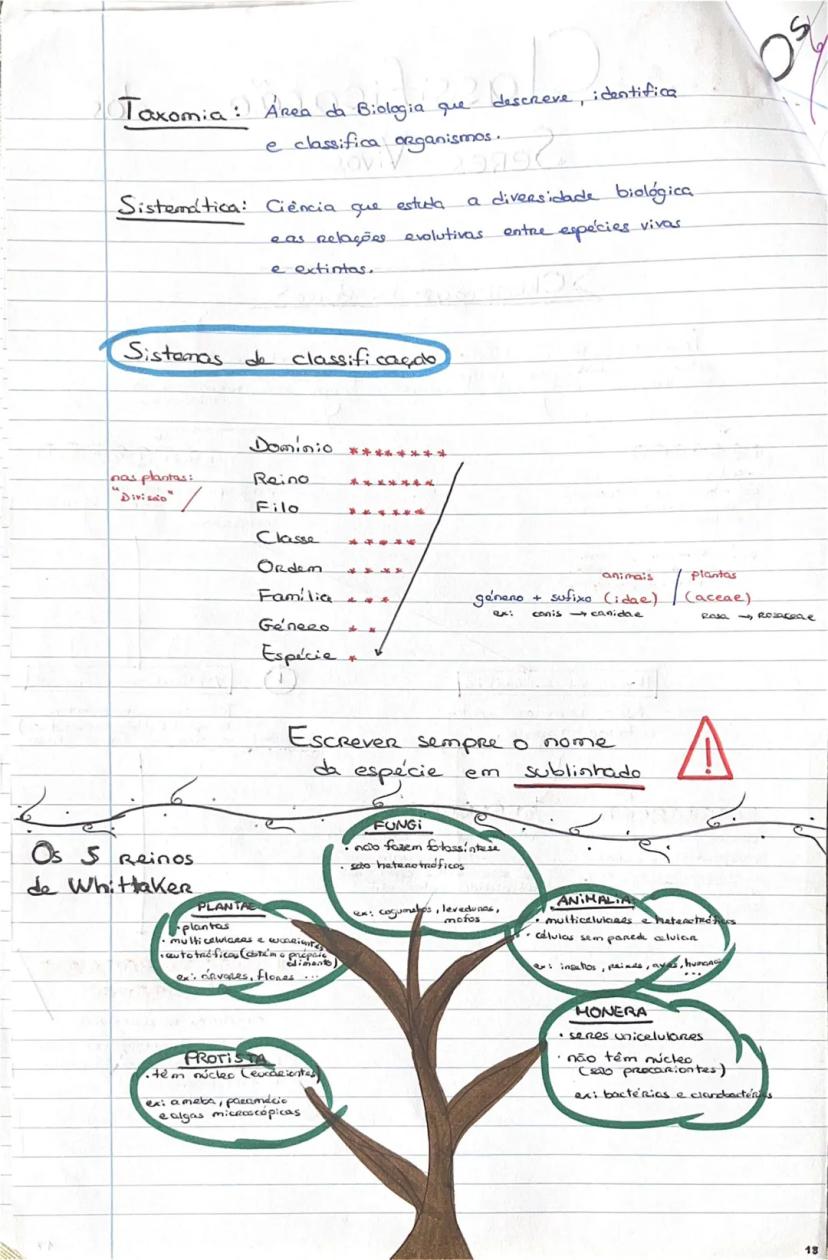 Os
Taxomia: Área da Biologia que descreve, identifica
e classifica organismos.
Sistemática: Ciência que estuda a diversidade biológica
e as relações evolutivas entre espécies vivas
e extintas.
Sistemas de classificação
Domínio ********
nas plantas:
"Divisão" /
Reino *******
Filo ******
Classe *****
Ordem ****
Família ***
Género **
Espécie *
animais / plantas
género + sufixo (idae) / (aceae)
ex: canis → canidae
Rosa → Rosaceae
Escrever sempre o nome
da espécie em sublinhado
!
Os 5 reinos
de Whittaker
FUNGI
· não fazem fotossíntese
· são heterotróficos
ex: cogumelos, leveduras,
mofos
PLANTAE
· plantas
· multicelulares e eucariontes
· autotróficos (obtém o próprio
alimento)
ex: árvores, flores ...
ANIMALIA
· multicelulares e heterotróficos
· células sem parede celular
ex: insetos, peixes, aves, humanos
...
PROTISTA
· têm núcleo (eucariontes)
ex: ameba, paramécio
e algas microscópicas
MONERA
· seres unicelulares
· não têm núcleo
(são procariontes)
ex: bactérias e cianobactérias
13